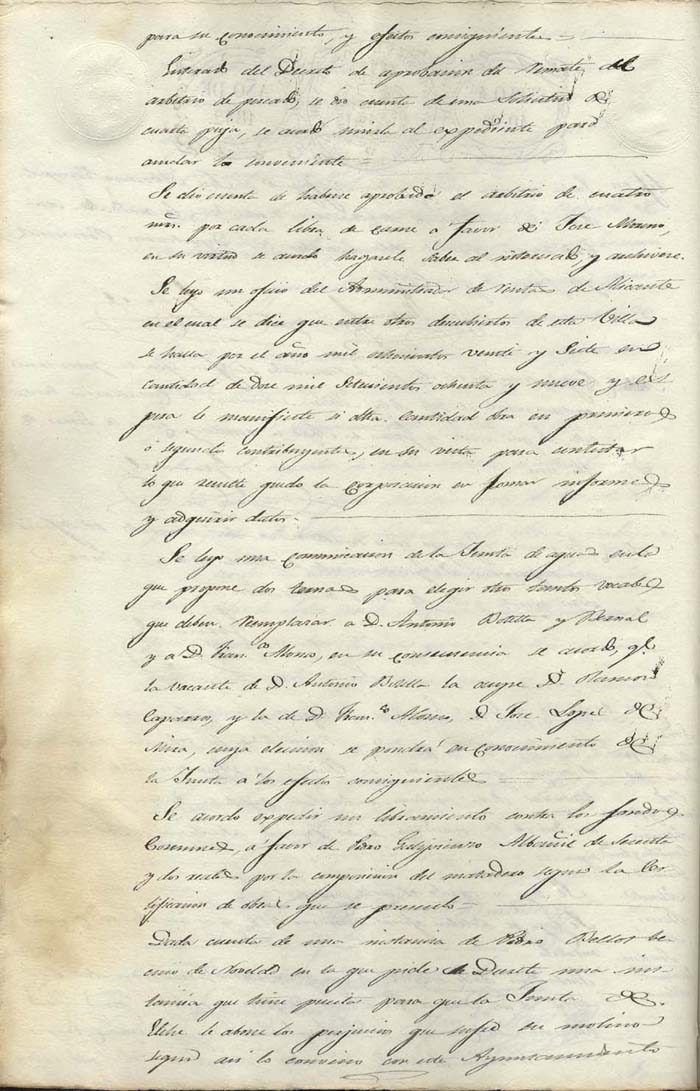 para su conocimiento, y efectos consiguientes =
Enterado del Decreto de aprobacion del remate del
arbitrio de pescado, se dio cuenta de una Solicitud de
cuarta puja, se acordó unirla al expediente para
acordar lo conveniente =
Se dio cuenta de haberse aprobado el arbitrio de cuatro
mrs. por cada libra de carne a favor de José Moreno,
en su virtud se acordo hagasele saber al interesado, y archivese.
Se leyo un oficio del Administrador de rentas de Alicante
en el cual se dice que entre otros descubiertos de esta Villa
se halla por el año mil ochocientos veinte y Siete en
cantidad de doce mil Setecientos ochenta y nueve y es
pera le manifieste si dha. Cantidad obra en primeros
ó segundos contribuyentes, en su vista para contestar
lo que resulte quedó la Corporacion en formar informe
y adquirir datos.
Se leyo una comunicacion de la Junta de aguas en la
que propone dos ternas para elegir otros tantos vocales
que deben reemplazar a D. Antonio Botella y Bernal
y a D. Fran.co Alonso, en su consecuencia se acordó, qe.
la vacante de D. Antonio Botella la ocupe D. Ramon
Caparros, y la de D. Fran.co Alonso, D. José Lopez de
Mira, cuya eleccion se pondrá en conocimiento de
la Junta á los efectos consiguientes
Se acordo expedir un libramiento contra los fondos
Comunes, a favor de Pedro Albañil de
y dos reales por la composicion del matadero segun la Cer
tificacion de obras que se presentó
Dada cuenta de una instancia de Pedro Belló ve
cino de Novelda en la que pide se Decrete una ins
tancia que tiene puesta para que la Junta de
Elche le abone los perjuicios que sufrió su molino
segun asi lo convino con este Ayuntamiento